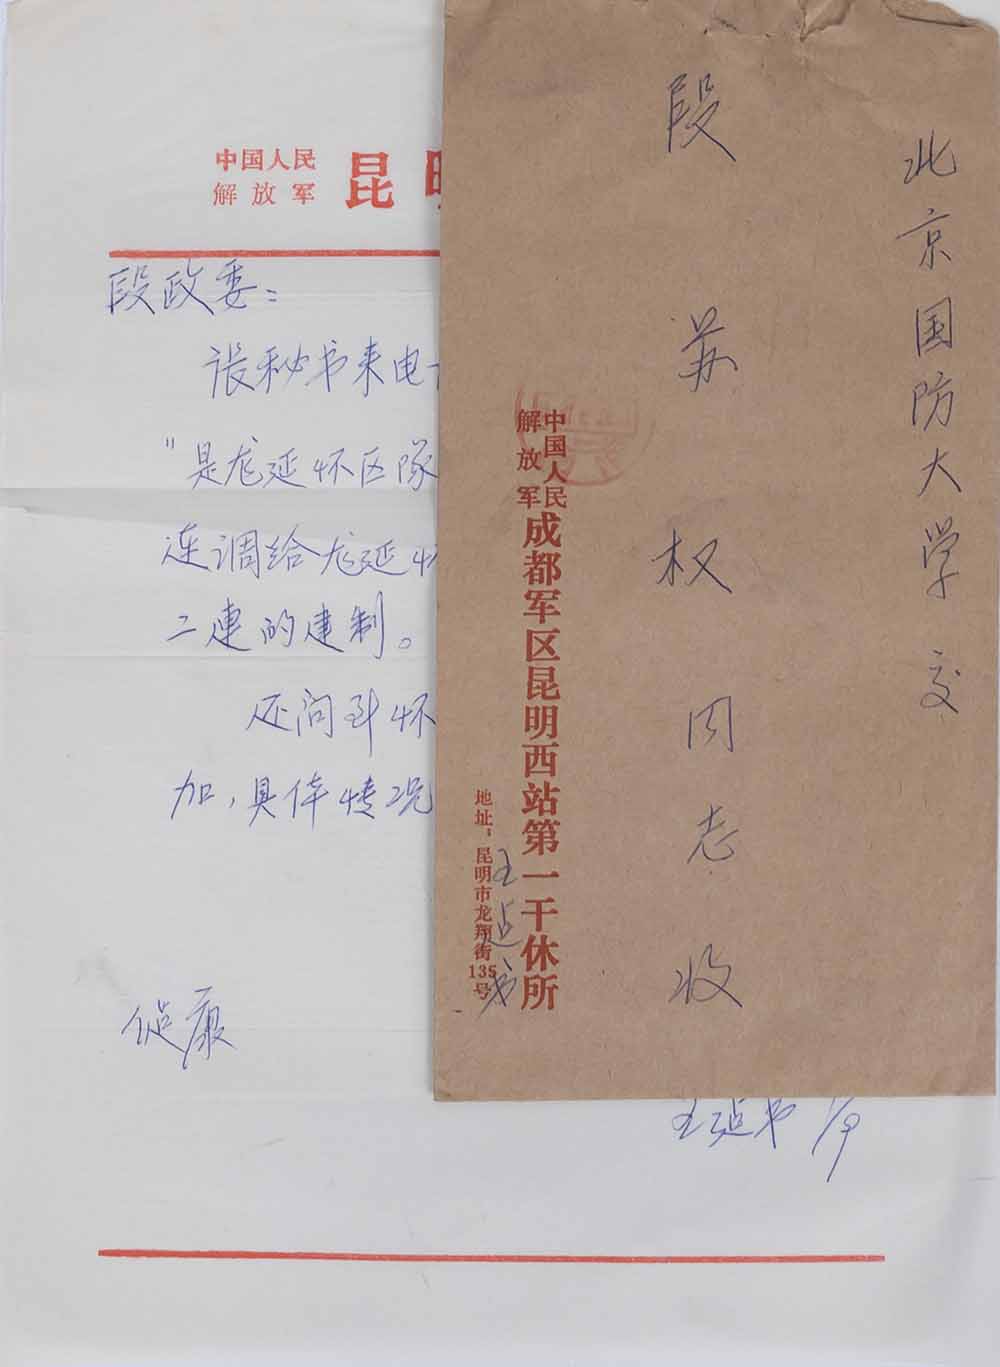 中国人民
解放军
昆
段政委：
张秘书来电
"是龙延怀区队
连调给龙延怀
二連的建制。
还问到怀
加，具体情况
健康
1/9
北京国防大学交
段苏权同志收
中国人民
解放军
成都军区昆明西站第一干休所
地址：昆明市龙翔街135号